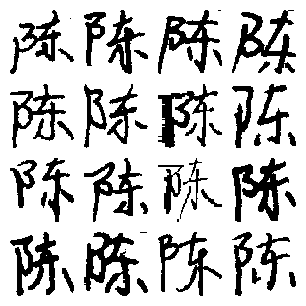 陈陈陈陈
陈陈陈陈
陈陈陈陈
陈陈陈陈